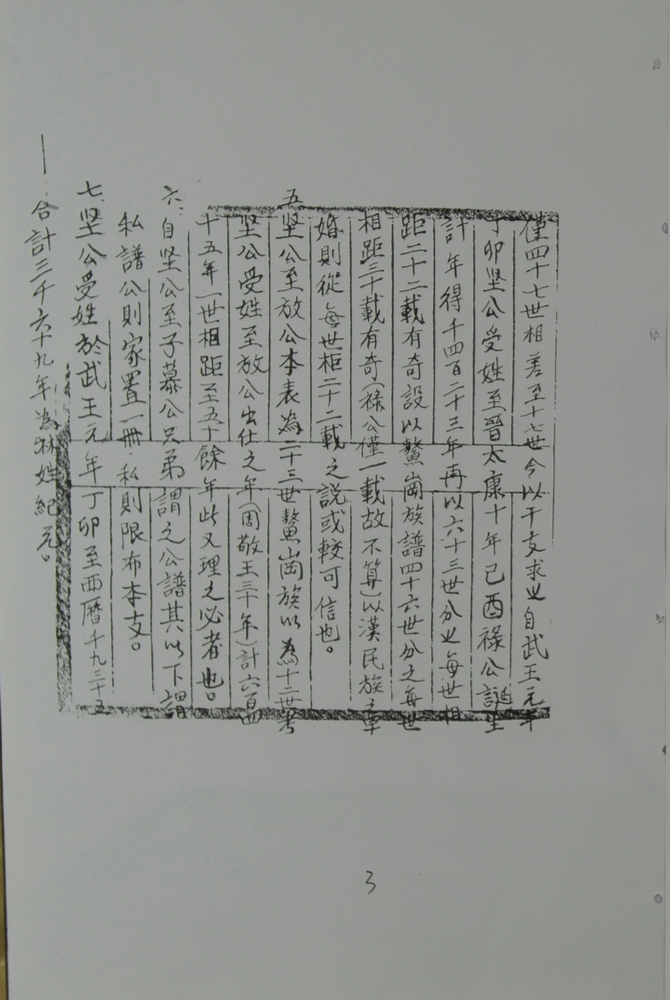 僅四十七世相差至十七世今以干支求之自武王元年
丁卯坚公受姓至晉太康十年己酉祿公誕生
計年得千四百二十三年再以六十三世分之每世相
距二十二載有奇設以鰲崗族譜四十六世分之每世
相距三十載有奇(祿公僅一載故不算)以漢民族早
婚則從每世柜二十二載之説或較可信也。
五坚公至放公本表為二十三世鰲崗族以為十二世考
坚公受姓至放公出仕之年(周敬王三十年)計六百四
十五年一世相距至五十餘年此又理之必者也。
六.自坚公至子慕公兄弟謂之公譜其以下謂
私譜公則家置一冊.私則限布本支。
七.坚公受姓於武王元年丁卯至西曆千九三十五
一.合計三千六十九年為林姓紀元。
3